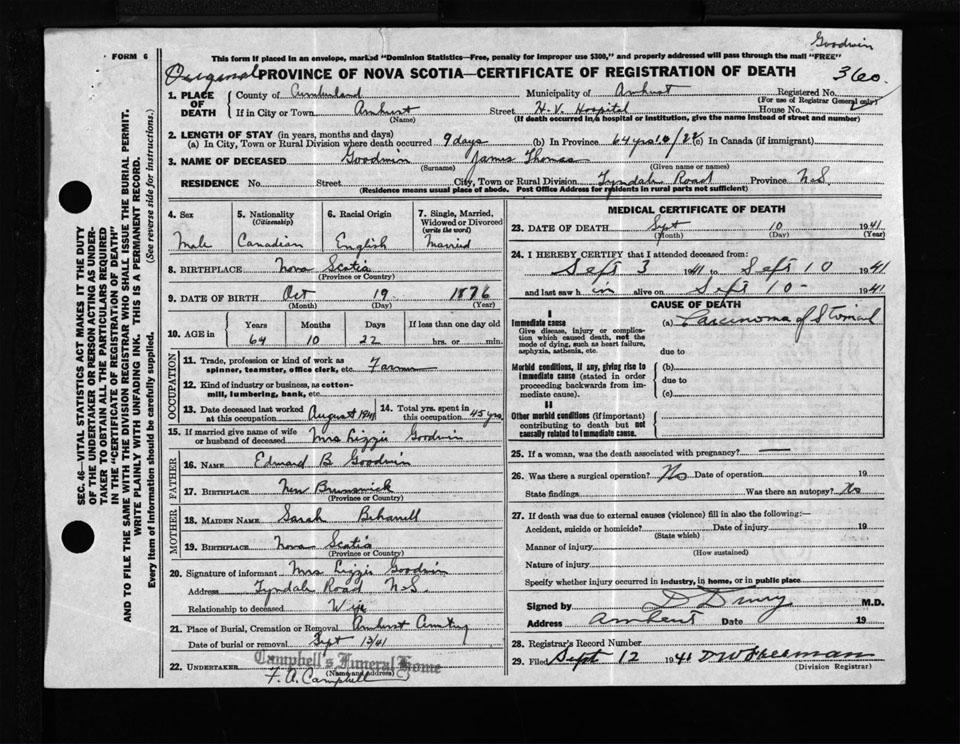 Goodwin
FORM 6
This form if placed in an envelope, marked "Dominion Statistics—Free, penalty for improper use $300," and properly addressed will pass through the mail "FREE"
Original PROVINCE OF NOVA SCOTIA—CERTIFICATE OF REGISTRATION OF DEATH 360
1. PLACE OF DEATH County of Cumberland Municipality of Amherst Registered No.
(For use of Registrar General only)
If in City or Town Amherst Street H.V. Hospital House No.
(Name) (If death occurred in a hospital or institution, give the name instead of street and number)
2. LENGTH OF STAY (in years, months and days)
(a) In City, Town or Rural Division where death occurred 9 days (b) In Province 64 yrs 10/22 (c) In Canada (if immigrant)
3. NAME OF DECEASED Goodwin James Thomas
(Surname) (Given name or names)
RESIDENCE No. Street City, Town or Rural Division Tyndale Road Province N.S.
(Residence means usual place of abode. Post Office Address for residents in rural parts not sufficient)
4. Sex 5. Nationality (Citizenship) 6. Racial Origin 7. Single, Married, Widowed or Divorced (write the word)
Male Canadian English Married
8. BIRTHPLACE Nova Scotia
(Province or Country)
9. DATE OF BIRTH Oct 19 1876
(Month) (Day) (Year)
10. AGE in Years Months Days If less than one day old
64 10 22 hrs. or min.
OCCUPATION
11. Trade, profession or kind of work as spinner, teamster, office clerk, etc. Farmer
12. Kind of industry or business, as cotton-mill, lumbering, bank, etc.
13. Date deceased last worked at this occupation August 1941 14. Total yrs. spent in this occupation 45 yrs.
15. If married give name of wife or husband of deceased Mrs Lizzie Goodwin
FATHER
16. NAME Edward B Goodwin
17. BIRTHPLACE New Brunswick
(Province or Country)
MOTHER
18. MAIDEN NAME Sarah
19. BIRTHPLACE Nova Scotia
(Province or Country)
20. Signature of informant Mrs Lizzie Goodwin
Address Tyndale Road N.S.
Relationship to deceased Wife
21. Place of Burial, Cremation or Removal Amherst
Date of burial or removal Sept 13/41
22. UNDERTAKER Campbell's Funeral Home
(Name and address)
F. A. Campbell
MEDICAL CERTIFICATE OF DEATH
23. DATE OF DEATH Sept 10 1941
(Month) (Day) (Year)
24. I HEREBY CERTIFY that I attended deceased from:
Sept 3 1941 to Sept 10 1941
and last saw h im alive on Sept 10 - 1941
CAUSE OF DEATH
I
Immediate cause (a) Carcinoma of Stomach
Give disease, injury or complication which caused death, not the mode of dying, such as heart failure, asphyxia, asthenia, etc.
due to
Morbid conditions, if any, giving rise to immediate cause (stated in order proceeding backwards from immediate cause).
(b)
due to
(c)
II
Other morbid conditions (if important) contributing to death but not causally related to immediate cause.
25. If a woman, was the death associated with pregnancy? —
26. Was there a surgical operation? No Date of operation 19
State findings Was there an autopsy? No
27. If death was due to external causes (violence) fill in also the following:—
Accident, suicide or homicide? Date of injury 19
(State which)
Manner of injury
(How sustained)
Nature of injury
Specify whether injury occurred in industry, in home, or in public place
Signed by M.D.
Address Amherst Date 19
28. Registrar's Record Number
29. Filed Sept 12 1941 D W Freeman
(Division Registrar)
SEC. 46—VITAL STATISTICS ACT MAKES IT THE DUTY
OF THE UNDERTAKER OR PERSON ACTING AS UNDER-
TAKER TO OBTAIN ALL THE PARTICULARS REQUIRED
IN THE "CERTIFICATE OF REGISTRATION OF DEATH"
AND TO FILE THE SAME WITH THE DIVISION REGISTRAR WHO SHALL ISSUE THE BURIAL PERMIT.
WRITE PLAINLY WITH UNFADING INK. THIS IS A PERMANENT RECORD.
Every item of information should be carefully supplied. (See reverse side for instructions.)